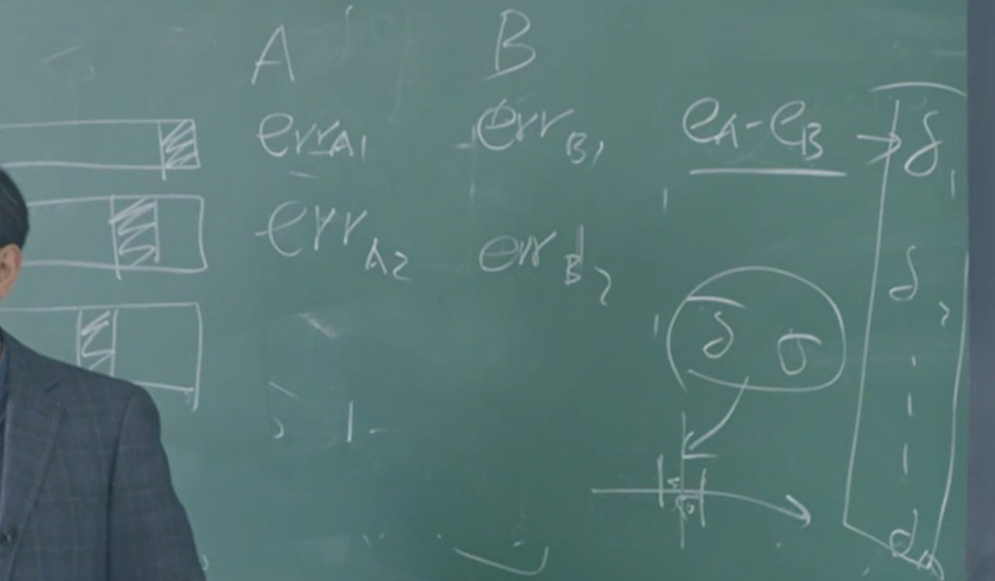 A B
err_A1 err_B1 e_A-e_B → δ_1
err_A2 err_B2 δ_2
δ̄ σ